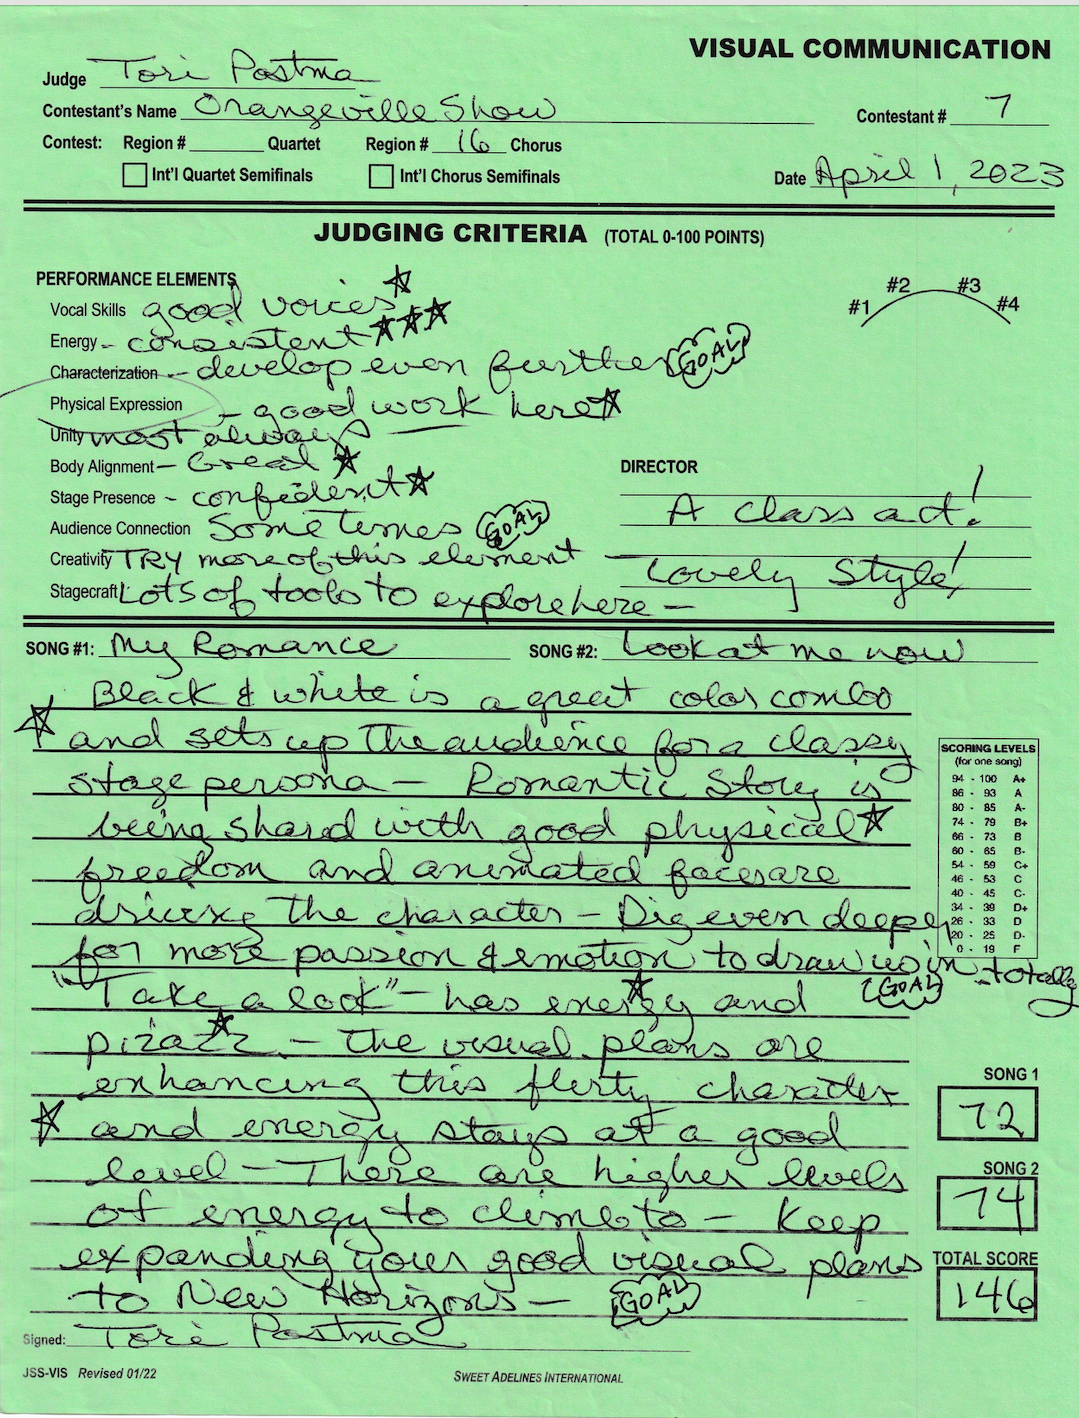 VISUAL COMMUNICATION
Judge Tori Postma
Contestant's Name Orangeville Show Contestant # 7
Contest: Region # Quartet Region # 16 Chorus
Int'l Quartet Semifinals Int'l Chorus Semifinals Date April 1, 2023
JUDGING CRITERIA (TOTAL 0-100 POINTS)
PERFORMANCE ELEMENTS
#1 #2 #3 #4
Vocal Skills good voices
Energy - consistent
Characterization - develop even further GOAL
Physical Expression - good work here
Unity most always
Body Alignment - Great
Stage Presence - confident
Audience Connection Sometimes GOAL
Creativity TRY more of this element
Stagecraft Lots of tools to explore here -
DIRECTOR
A class act!
Lovely Style!
SONG #1: My Romance SONG #2: Look at me now
Black & white is a great color combo
and sets up the audience for a classy
stage persona - Romantic Story is
being shared with good physical
freedom and animated faces are
driving the character - Dig even deeper
for more passion & emotion to draw us in totally
"Take a look" - has energy and GOAL
pizazz - the visual plans are
enhancing this flirty character
and energy stays at a good
level - There are higher levels
of energy to climb to - Keep
expanding your good visual plans
to New Horizons - GOAL
SCORING LEVELS
(for one song)
94 - 100 A+
86 - 93 A
80 - 85 A-
74 - 79 B+
66 - 73 B
60 - 65 B-
54 - 59 C+
46 - 53 C
40 - 45 C-
34 - 39 D+
26 - 33 D
20 - 25 D-
0 - 19 F
SONG 1
72
SONG 2
74
TOTAL SCORE
146
Signed: Tori Postma
JSS-VIS Revised 01/22 SWEET ADELINES INTERNATIONAL